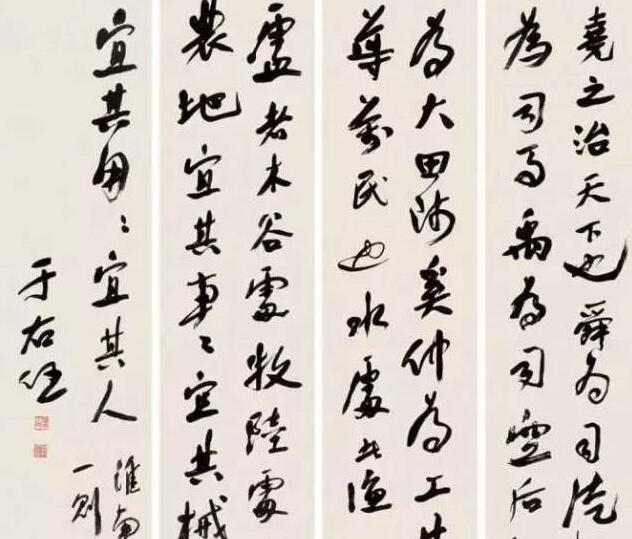 堯之治天下也舜為司徒
為司馬禹為司空后
為大田師奚仲為工其
導萬民也水處者漁
處者木谷處牧陸處
農地宜其事〻宜其械
宜其用〻宜其人
淮南
一則
于右任